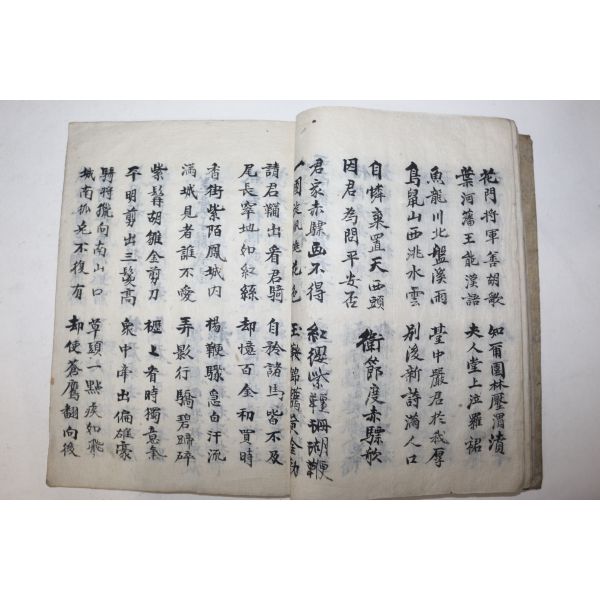 花門將軍善胡歌 知爾園林壓渭濱
葉河藩王能漢語 夫人堂上泣羅裙
魚龍川北盤溪雨 臺中嚴君於我厚
鳥鼠山西洮水雲 別後新詩滿人口
自憐棄置天西頭 衛節度赤驃歌
因君為問平安否
君家赤驃画不得 紅纓紫韁珊瑚鞭
一團旋風桃花色 玉鞍錦韉黃金勒
請君鞴出看君騎 自矜諸馬皆不及
尾長窣地如紅絲 却憶百金初買時
香街紫陌鳳城內 揚鞭驟急白汗流
滿城見者誰不愛 弄影行驕碧蹄碎
紫髯胡雛金剪刀 櫪上看時獨意氣
平明剪出三鬉高 衆中牽出偏雄豪
騎將獵向南山口 草頭一點疾如飛
城南狐兎不復有 却使蒼鷹翻向後